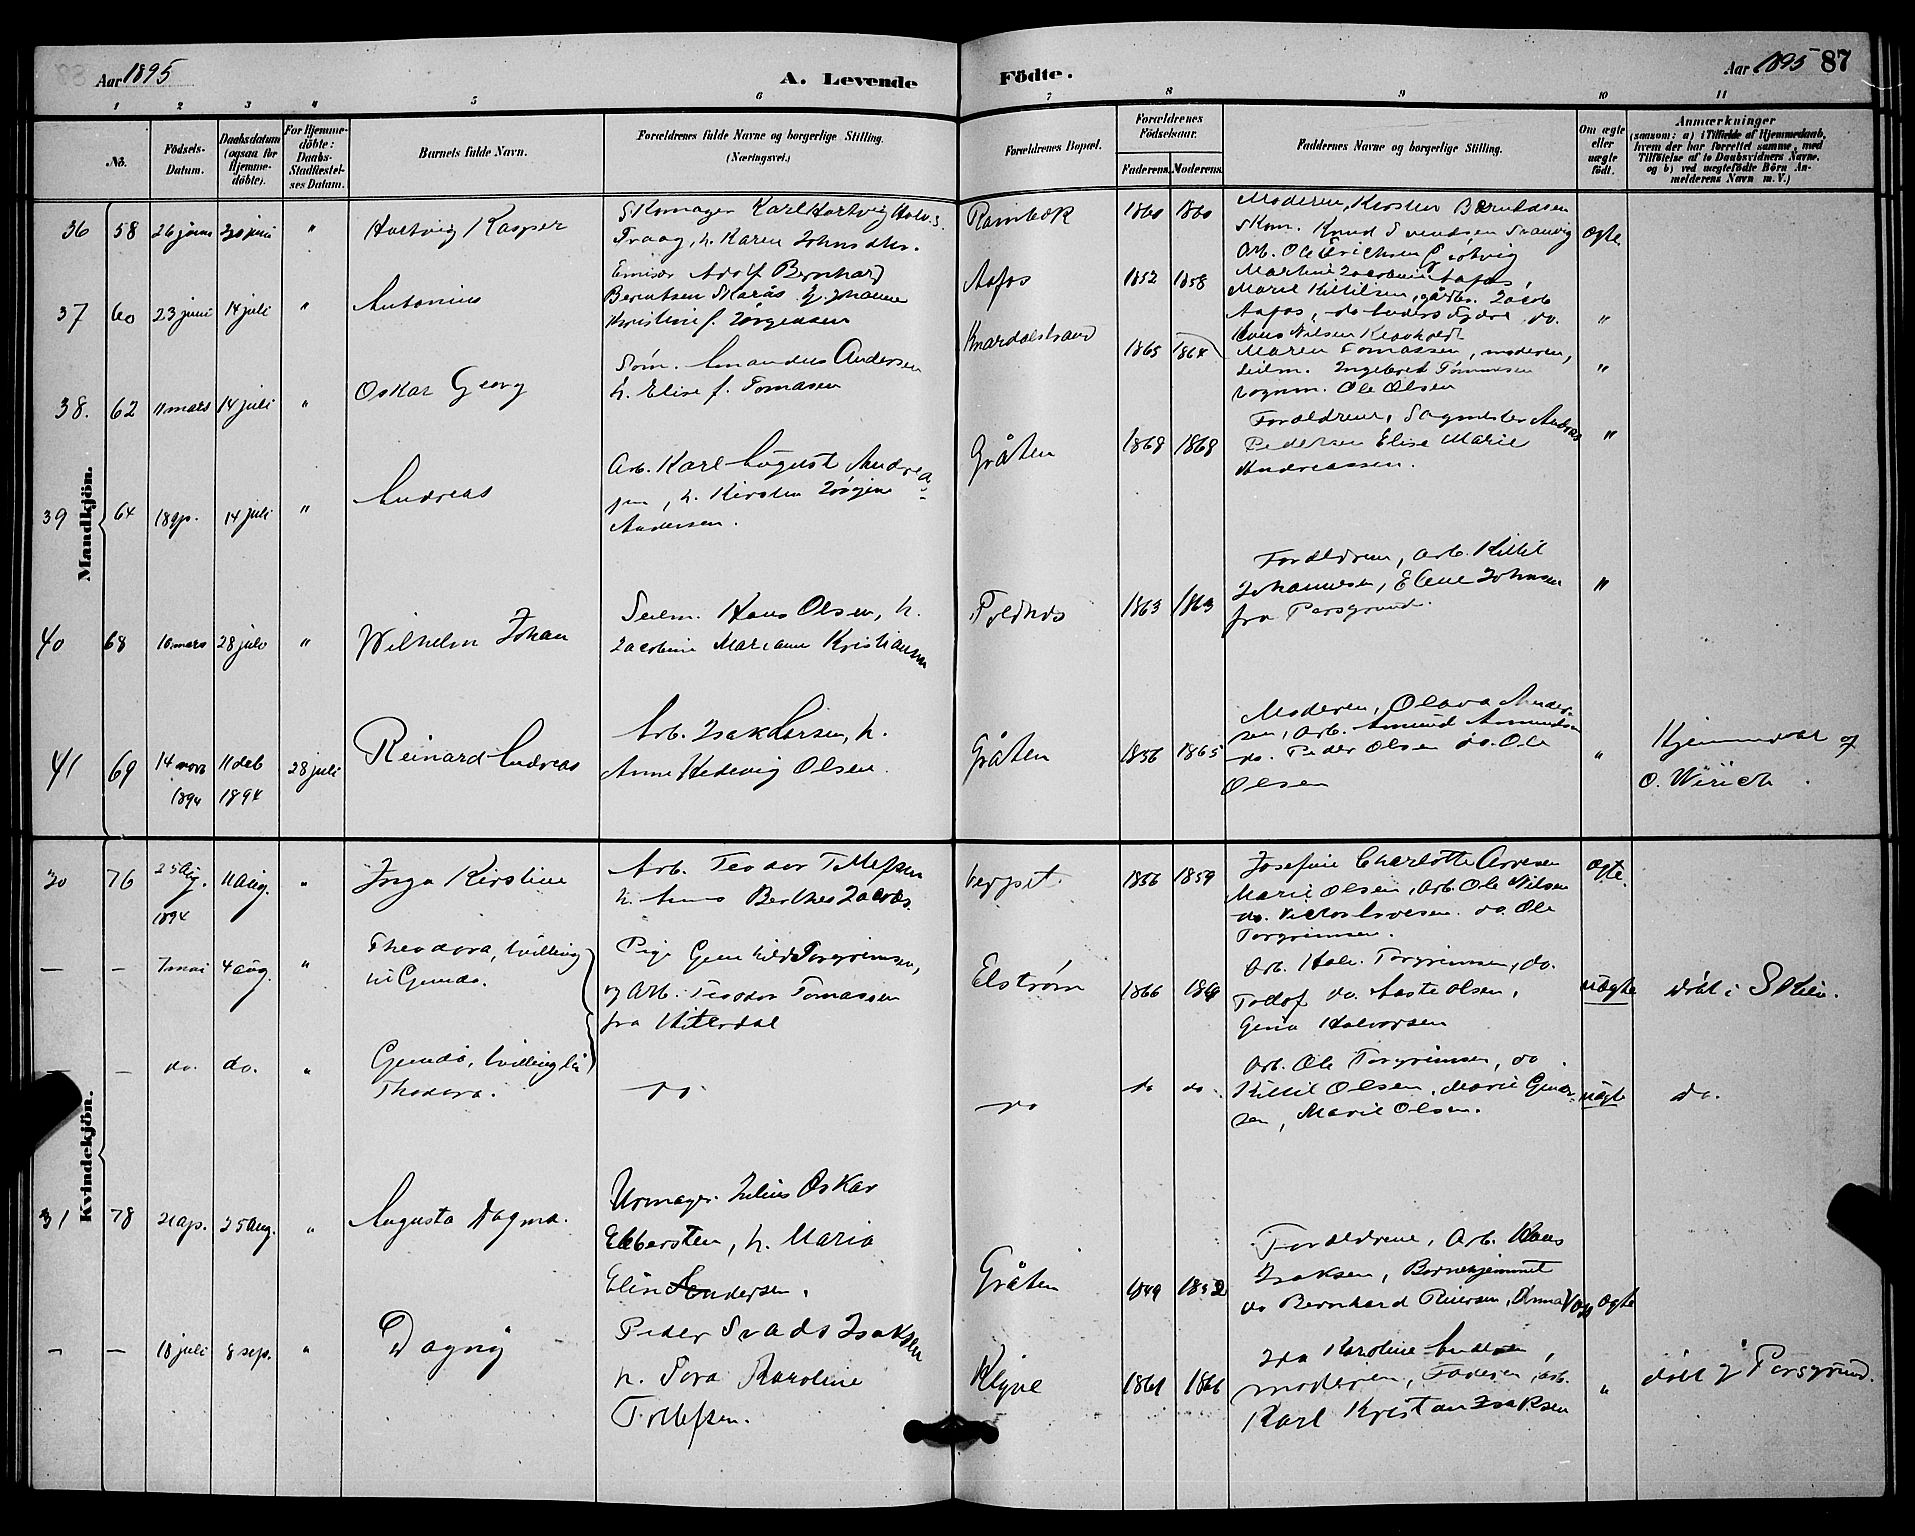 Aar 1895
A. Levende
Födte.
Aar 1895
87
1 2 3 4 5 6 7 8 9 10 11
No.
Födsels-
Datum.
Daabsdatum
(ogsaa for
Hjemme-
döbte).
For Hjemme-
döbte:
Daabs-
Stadfæstel-
ses Datum.
Barnets fulde Navn.
Forældrenes fulde Navne og borgerlige Stilling.
(Næringsvei.)
Forældrenes Bopæl.
Forældrenes
Födselsaar.
Faderens. Moderens.
Faddernes Navne og borgerlige Stilling.
Om ægte
eller
uægte
födt.
Anmærkninger
(saasom: a) i Tilfælde af Hjemmedaab,
hvem der har forrettet samme, med
Tilföielse af to Daabsvidners Navne,
og b) ved uægtefödte Börn An-
melderens Navn m. V.)
Mandkjön.
36 58 26 juni 30 juni " Hartvig Kasper
Skomager Karl Hartvig Halvs.
Traag, h. Karen Johnsdtr.
1860 1860
Moderen, Kirsten Berntsen
Skom. Knud Svendsen
Arb. Ole Erichsen
ægte
37 60 23 juni 14 juli " Antonius
Emisær Adolf Bernhard
Berentsen Skarås h. Johanne
Kristine f. Jörgensen
Aafos 1852 1858
Martine Jacobine Aafos,
Marie Kittilsen, gårdbr. Jacob
Aafos, do Anders do.
Hans Nilsen
"
38. 62 11 mars 14 juli " Oskar Georg
Söm. Amandus Andersen
h. Elise f. Tomasen
Knardalstrand 1865 1864
Maren Tomassen, moderen,
Seilm. Ingebret
vognm. Ole Olsen
"
39 64 18 ap. 14 juli " Andreas
Arb. Karl August Andrea
sen, h. Kirsten Jörgine
Andersen.
Gråten 1868 1868
Forældrene, Sagmester Andreas
Pedersen Elise Marie
Andreassen.
"
40 68 10 mars 28 juli " Wilhelm Johan
Seilm. Hans Olsen, h.
Jacobine Mariane Kristiansen
Foldnes 1863 1863
Forældrene, arb. Kittil
Johannesen, Elene Johnsen
fra Porsgrund.
"
41 69 14 novb 1894 11 deb 1894 28 juli Reinard Andreas
Arb. Isak Larsen, h.
Anne Hedevig Olsen.
Gråten 1856 1865
Moderen, Olava Ander-
sen, arb. Amund Amundsen
do. Peder Olsen do. Ole
Olsen
"
Hjemmedøbt af
O. Wirich.
Kvindekjön.
30 76 25 Aug. 1894 11 Aug. " Inga Kirstine
Arb. Teodor Tollefsen
h. Anne Berthea Jacobs.
1856 1859
Josefine Charlotte Arvesen
Marie Olsen, Arb. Ole Nilsen
do. Victor Arvesen. do. Ole
Torgrimsen.
ægte.
— — 7 mai 4 aug. " Theodora, tvilling
til Gunda.
Pige Gunhild Torgrimsen,
og Arb. Teodor Tomassen
fra Hiterdal
Elstrøm 1866
Arb. Halv. Torgrimsen, do.
Tollof do. Aaste Olsen,
Gina Halvorsen
uægte
døbt i Skien.
— — do. do. " Gunda, tvilling til
Theodora.
do
do do do.
Arb. Ole Torgrimsen, do
Kittil Olsen, Marie Gunder-
sen, Marie Olsen.
uægte
do.
31 78 21 ap. 25 Aug. " Augusta Dagma.
Urmager Julius Oskar
Ebbersten, h. Maria
Elin Andersen.
Gråten 1849 1852
Forældrene, Arb. Hans
Isaksen, Börnehjemmet
do Bernhard Reiersen, Anna Voss
ægte
— — 18 juli 8 sep. " Dagny
Peder Svads Isaksen
h. Tora Karoline
Tollefsen.
Klyve 1861 1866
Ida Karoline Andersen,
moderen, Faderen, arb.
Karl Kristian Isaksen
"
døbt i Porsgrund.